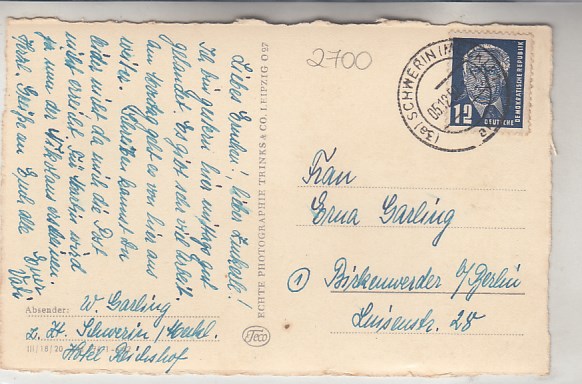 Liebes Ernchen! Liebes Liebele!
Ich bin gestern hier mittags gut
gelandet. Es gibt sehr viel Arbeit.
Am Montag geht es von hier aus
weiter. Schreiben kannst Du
leider nicht da mich die Post
nicht erreicht. Für Martin wird
ja nun der Nikolaus erscheinen
Herzl. Grüße an Euch alle Euer
Vati
Absender: W. Garling
z. Zt. Schwerin/Meckl.
Hotel Reichshof
III/18/20
ECHTE PHOTOGRAPHIE TRINKS & CO. LEIPZIG O 27
Teco
2700
(3a) SCHWERIN (M
05.12.5
a
12
DEUTSCHE
DEMOKRATISCHE REPUBLIK
Frau
Erna Garling
1 Birkenwerder b/Berlin
Luisenstr. 28